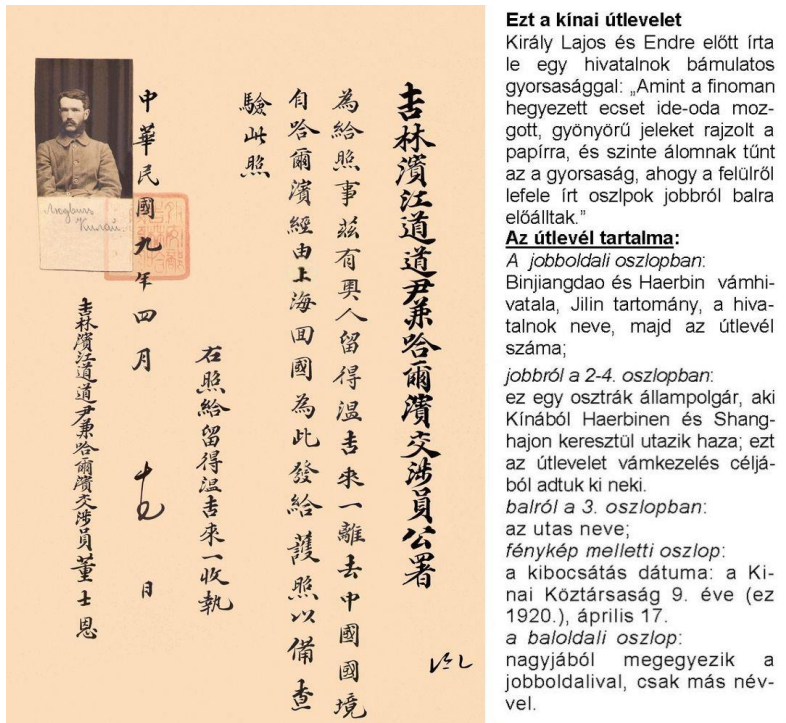 吉林濱江道道尹兼哈爾濱交涉員公署
為給照事茲有奧人留得溫吉來一離去中國國境
自哈爾濱經由上海回國為此發給護照以備查
驗此照
右照給留得溫吉來一收執
中華民國九年四月 日
吉林濱江道道尹兼哈爾濱交涉員董士恩
Людвигъ
Ezt a kínai útlevelet
Király Lajos és Endre előtt írta
le egy hivatalnok bámulatos
gyorsasággal: „Amint a finoman
hegyezett ecset ide-oda moz-
gott, gyönyörű jeleket rajzolt a
papírra, és szinte álomnak tűnt
az a gyorsaság, ahogy a felülről
lefele írt oszlpok jobbról balra
előálltak.”
Az útlevél tartalma:
A jobboldali oszlopban:
Binjiangdao és Haerbin vámhi-
vatala, Jilin tartomány, a hiva-
talnok neve, majd az útlevél
száma;
jobbról a 2-4. oszlopban:
ez egy osztrák állampolgár, aki
Kínából Haerbinen és Shang-
hajon keresztül utazik haza; ezt
az útlevelet vámkezelés céljá-
ból adtuk ki neki.
balról a 3. oszlopban:
az utas neve;
fénykép melletti oszlop:
a kibocsátás dátuma: a Kí-
nai Köztársaság 9. éve (ez
1920.), április 17.
a baloldali oszlop:
nagyjából megegyezik a
jobboldalival, csak más név-
vel.